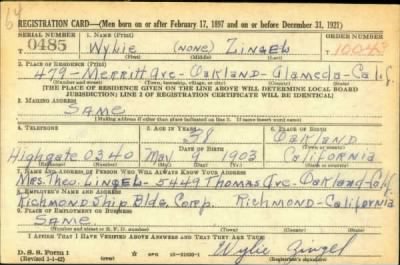 REGISTRATION CARD—(Men born on or after February 17, 1897 and on or before December 31, 1921)
SERIAL NUMBER 1. NAME (Print) ORDER NUMBER
U 0485 Wylie (NONE) Zingel 10043
(First) (Middle) (Last)
2. PLACE OF RESIDENCE (Print)
479-Merritt Ave-Oakland-Alameda-Calif.
(THE PLACE OF RESIDENCE GIVEN ON THE LINE ABOVE WILL DETERMINE LOCAL BOARD
JURISDICTION; LINE 2 OF REGISTRATION CERTIFICATE WILL BE IDENTICAL)
3. MAILING ADDRESS
Same
(Mailing address if other than place indicated on line 2. If same insert word same)
4. TELEPHONE 5. AGE IN YEARS 6. PLACE OF BIRTH
38 Oakland
DATE OF BIRTH (Town or county)
Highgate 0340 May 9 1903 California
(Mo.) (Day) (Yr.) (State or country)
7. NAME AND ADDRESS OF PERSON WHO WILL ALWAYS KNOW YOUR ADDRESS
Mrs. Theo. Zingel-5449 Thomas Ave-Oakland-Calif
8. EMPLOYER'S NAME AND ADDRESS
Richmond Ship Bldg. Corp. Richmond-California
9. PLACE OF EMPLOYMENT OR BUSINESS
Same
(Number and street or R. F. D. number) (Town) (County) (State)
I AFFIRM THAT I HAVE VERIFIED ABOVE ANSWERS AND THAT THEY ARE TRUE.
D. S. S. Form 1
Wylie Zingel
(Registrant's signature)